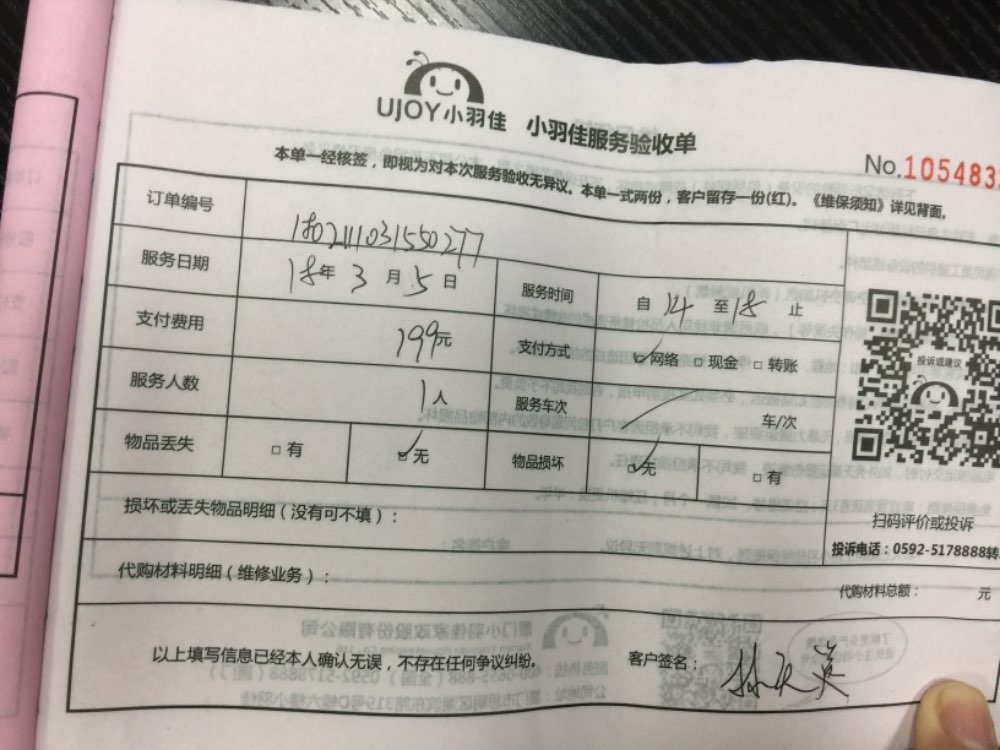 UJOY小羽佳 小羽佳服务验收单
No.105483
本单一经核签，即视为对本次服务验收无异议。本单一式两份，客户留存一份(红)。《维保须知》详见背面。
订单编号 180211031550277
服务日期 18年 3 月 5 日 服务时间 自 14 至 18 止
支付费用 199元 支付方式 ☑网络 □现金 □转账
服务人数 1人 服务车次 车/次
物品丢失 □有 ☑无 物品损坏 ☑无 □有
投诉或建议
扫码评价或投诉
投诉电话：0592-5178888转
损坏或丢失物品明细（没有可不填）：
代购材料明细（维修业务）： 代购材料总额： 元
以上填写信息已经本人确认无误，不存在任何争议纠纷。 客户签名：